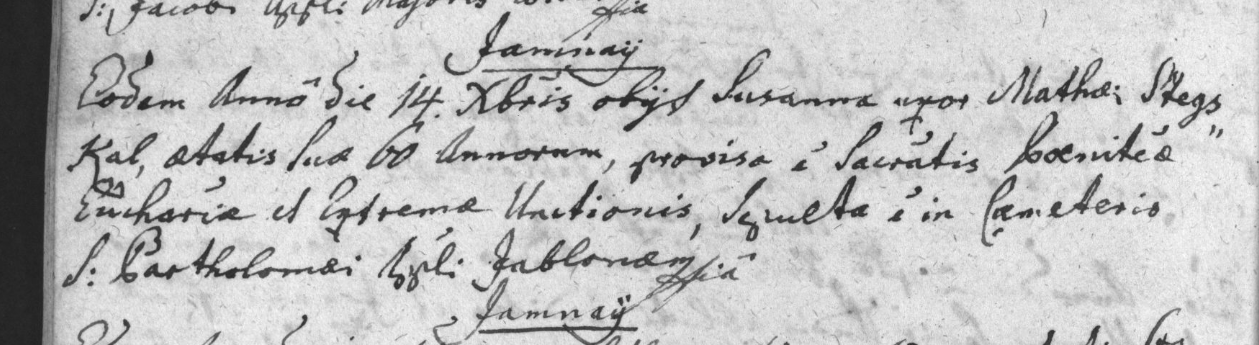 S: Jacobi Apli Majoris
Jamnaÿ
Eodem Anno die 14. Xbris obijt Susanna uxor Mathæi Stegs"
Kal, ætatis suæ 60 Annorum, provisa é Sacratis Pœnitéæ
Euchariæ et Extremæ Unctionis, Sepulta é in Cæmeterio
S: Bartholomæi Apli Jablonæn/siâ
Jamnaÿ